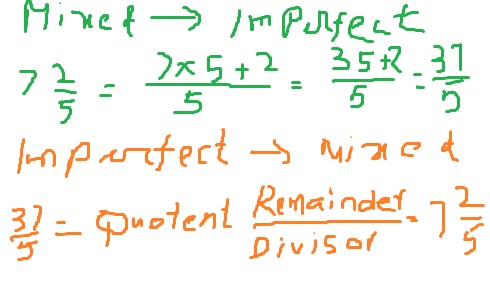 Mixed → Imperfect
7 2/5 = 7×5+2/5 = 35+2/5 = 37/5
Imperfect → Mixed
37/5 = Quotent Remainder/Divisor = 7 2/5